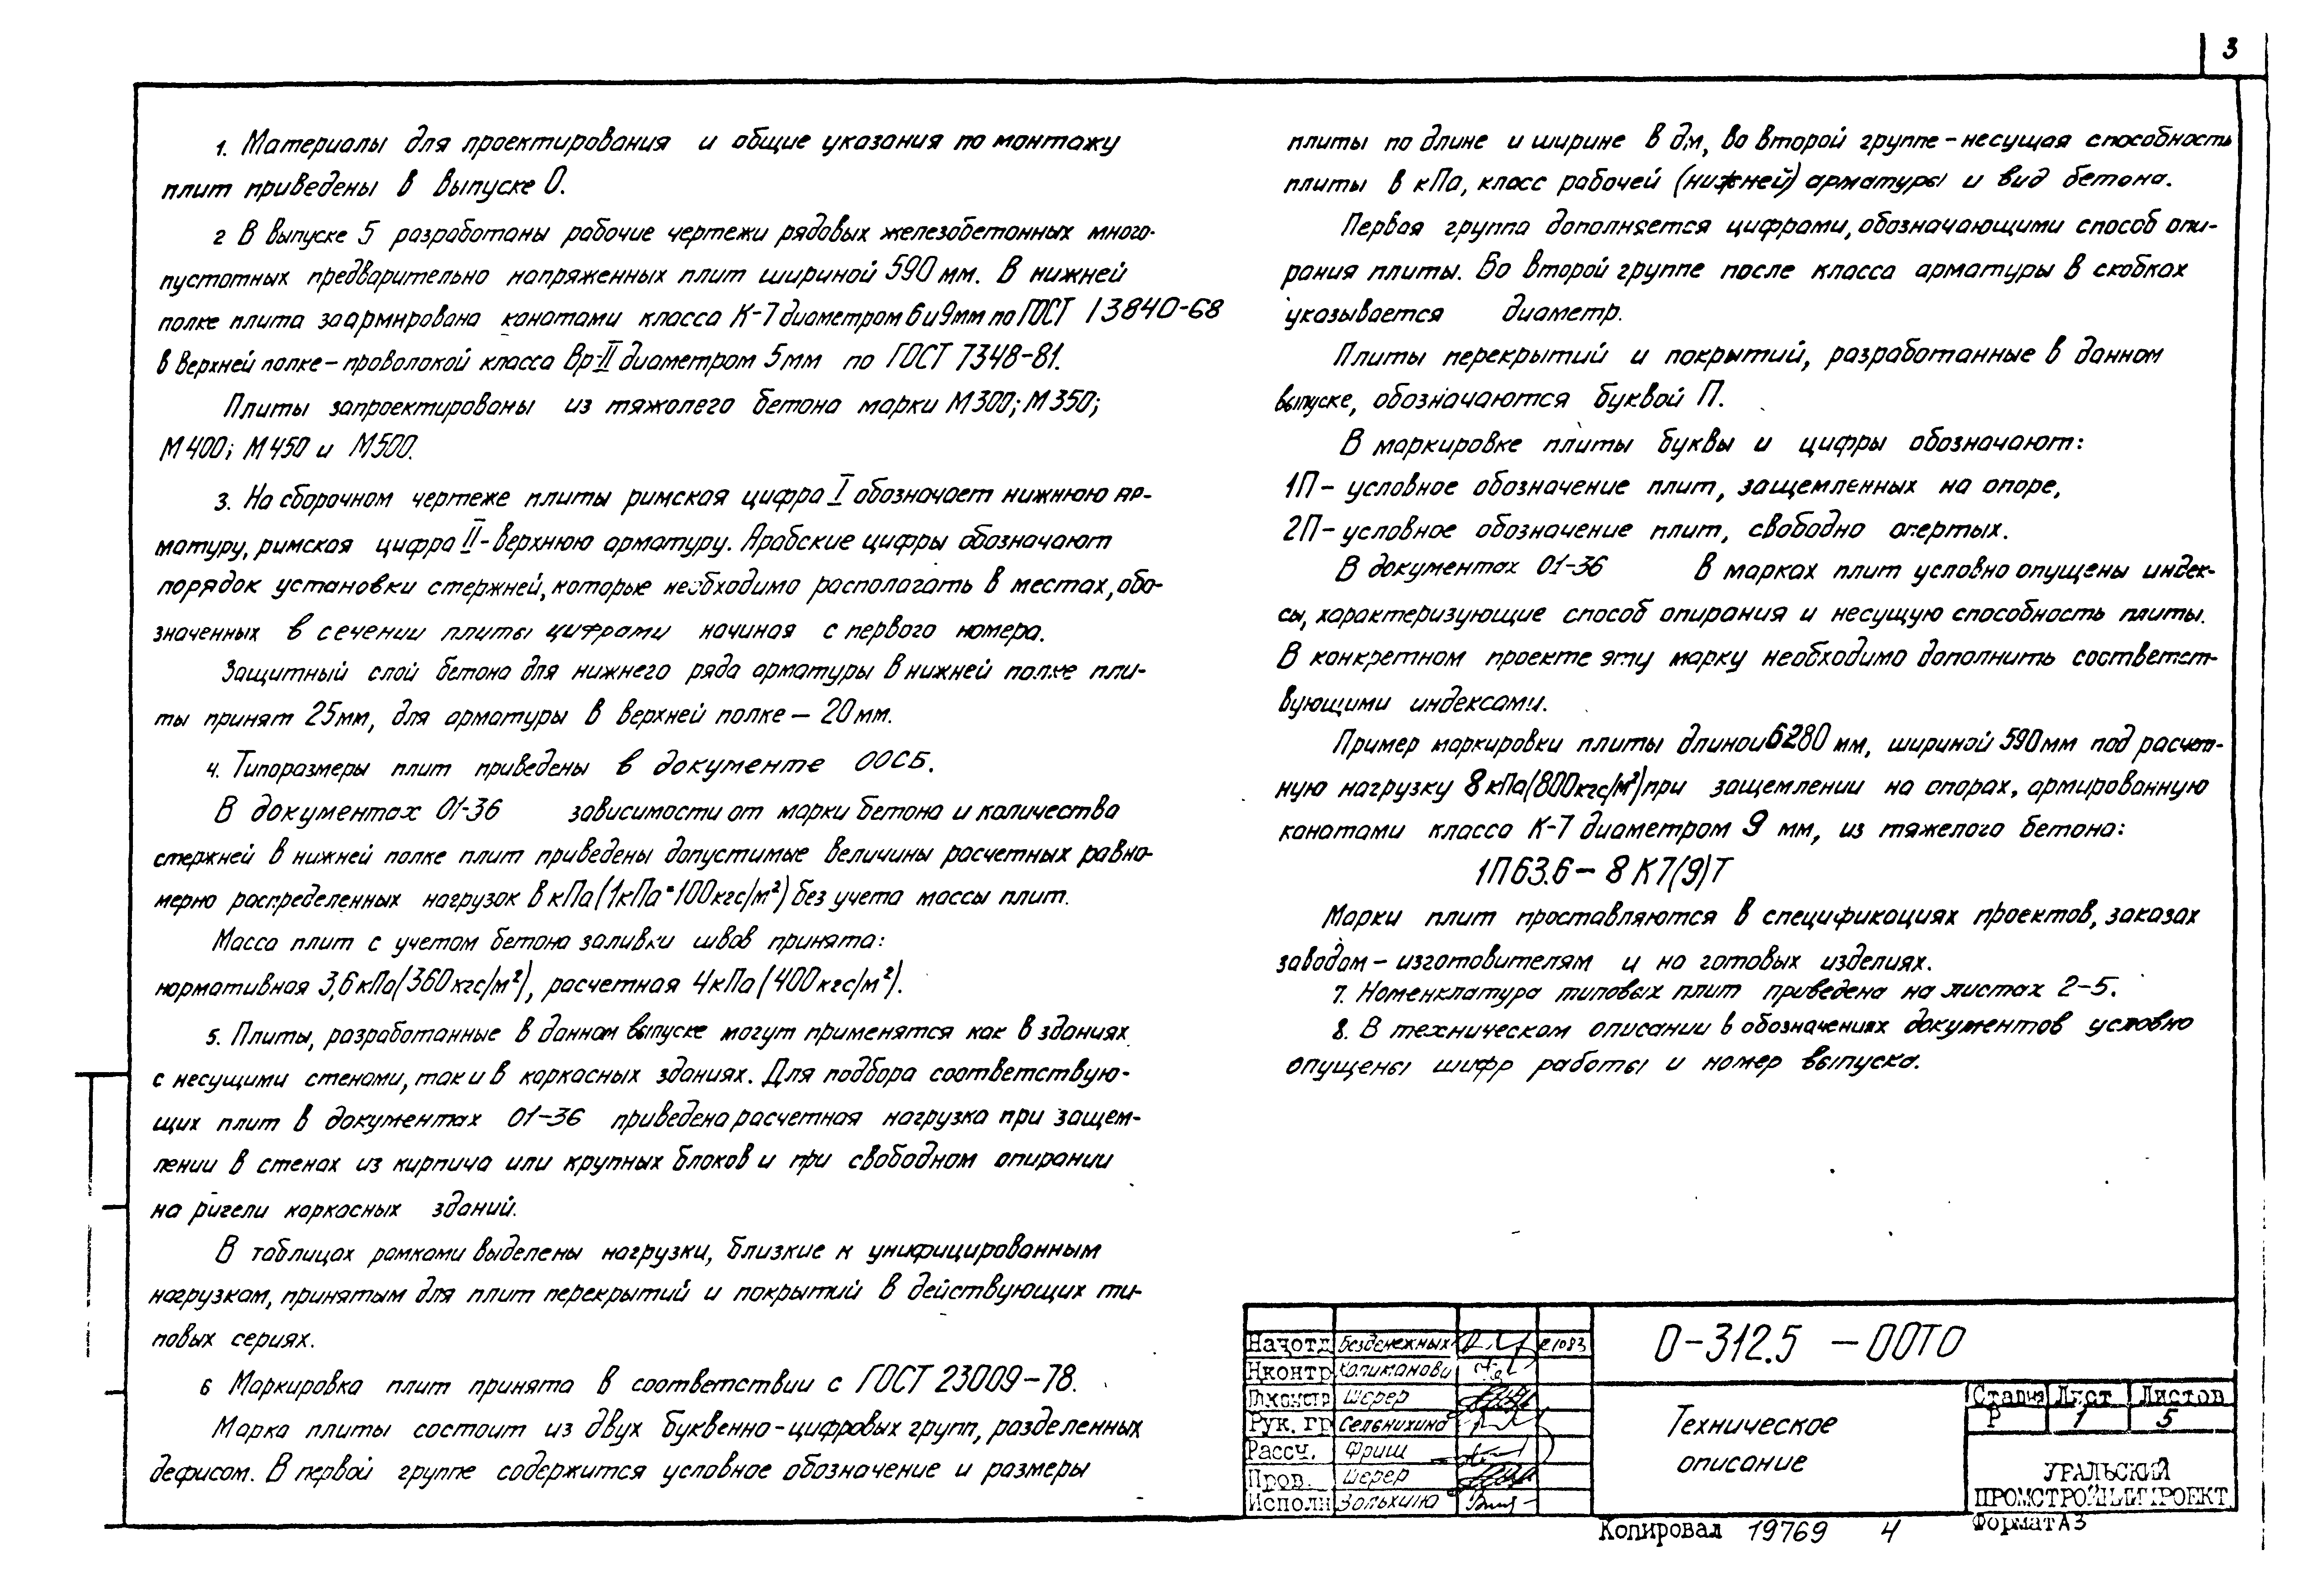 3
1. Материалы для проектирования и общие указания по монтажу
плит приведены в выпуске 0.
2 В выпуске 5 разработаны рабочие чертежи рядовых железобетонных много-
пустотных предварительно напряженных плит шириной 590 мм. В нижней
полке плита заармирована канатами класса К-7 диаметром 6 и 9 мм по ГОСТ 13840-68
в верхней полке – проволокой класса Вр-II диаметром 5 мм по ГОСТ 7348-81.
Плиты запроектированы из тяжолего бетона марки М300; М350;
М400; М450 и М500.
3. На сборочном чертеже плиты римская цифра I обозначает нижнюю ар-
матуру, римская цифра II- верхнюю арматуру. Арабские цифры обозначают
порядок установки стержней, которые необходимо располагать в местах, обо-
значенных в сечении плиты цифрами начиная с первого номера.
Защитный слой бетона для нижнего ряда арматуры в нижней полке пли-
ты принят 25мм, для арматуры в верхней полке – 20 мм.
4. Типоразмеры плит приведены в документе 00СБ.
В документах 01-36 зависимости от марки бетона и количества
стержней в нижней полке плит приведены допустимые величины расчетных равно-
мерно распределенных нагрузок в кПа (1кПа=100кгс/м²) без учета массы плит.
Масса плит с учетом бетона заливки швов принята:
нормативная 3,6 кПа (360 кгс/м²), расчетная 4кПа (400 кгс/м²).
5. Плиты, разработанные в данном выпуске могут применятся как в зданиях
с несущими стенами, так и в каркасных зданиях. Для подбора соответствую-
щих плит в документах 01-36 приведена расчетная нагрузка при защем-
лении в стенах из кирпича или крупных блоков и при свободном опирании
на ригели каркасных зданий.
В таблицах рамками выделены нагрузки, близкие к унифицированным
нагрузкам, принятым для плит перекрытий и покрытий в действующих ти-
повых сериях.
6 Маркировка плит принята в соответствии с ГОСТ 23009-78.
Марка плиты состоит из двух буквенно-цифровых групп, разделенных
дефисом. В первой группе содержится условное обозначение и размеры
плиты по длине и ширине в дм, во второй группе – несущая способность
плиты в кПа, класс рабочей (нижней) арматуры и вид бетона.
Первая группа дополняется цифрами, обозначающими способ опи-
рания плиты. Во второй группе после класса арматуры в скобках
указывается диаметр.
Плиты перекрытий и покрытий, разработанные в данном
выпуске, обозначаются буквой П.
В маркировке плиты буквы и цифры обозначают:
1П – условное обозначение плит, защемленных на опоре,
2П – условное обозначение плит, свободно опертых.
В документах 01-36 В марках плит условно опущены индек-
сы, характеризующие способ опирания и несущую способность плиты.
В конкретном проекте эту марку необходимо дополнить соответст-
вующими индексами.
Пример маркировки плиты длиной 6280 мм, шириной 590 мм под расчет-
ную нагрузку 8 кПа (800кгс/м²) при защемлении на опорах, армированную
канатами класса К-7 диаметром 9 мм, из тяжелого бетона:
1П63.6 – 8 К7(9)Т
Марки плит проставляются в спецификациях проектов, заказах
заводам – изготовителям и на готовых изделиях.
7. Номенклатура типовых плит приведена на листах 2-5.
8. В техническом описании в обозначениях документов условно
опущены шифр работы и номер выпуска.
Нач отд Безденежных 1083
Н контр Калиманови
Гл.констр Шерер
Рук. гр Сельнихина
Рассч. Фриш
Пров. Шерер
Исполн Зольхина
0-312.5 – 00ТО
Техническое
описание
Стадия Лист Листов
Р 1 5
УРАЛЬСКИЙ
ПРОМСТРОЙНИИПРОЕКТ
Копировал 19769 4 Формат А3